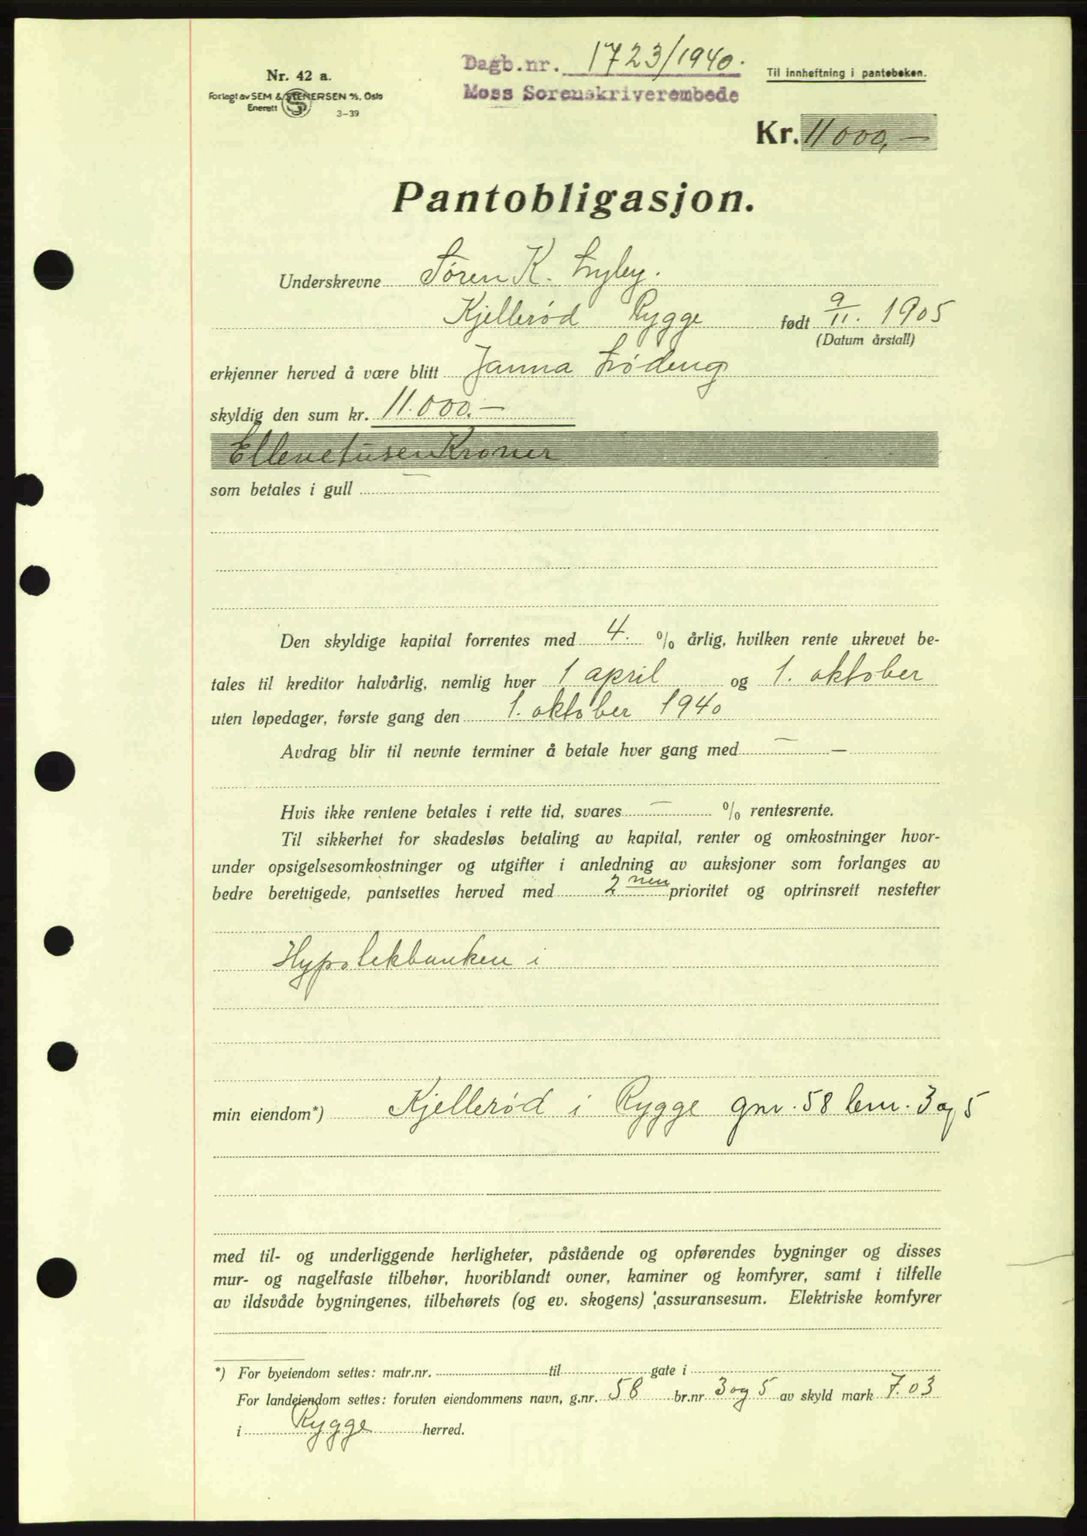 Nr. 42 a.
Forlagt av SEM & STENERSEN A/S, Oslo
Enerett
3-39
Dagb.nr. 1723/1940.
Moss Sorenskriverembede
Til innheftning i panteboken.
Kr. 11000,—
Pantobligasjon.
Underskrevne Søren K. Lyby.
Kjellerød Rygge født 9/11. 1905
(Datum årstall)
erkjenner herved å være blitt Janna Lødeng
skyldig den sum kr. 11.000.—
Ellevetusen Kroner
som betales i gull —
Den skyldige kapital forrentes med 4. % årlig, hvilken rente ukrevet be-
tales til kreditor halvårlig, nemlig hver 1 april og 1. oktober
uten løpedager, første gang den 1. oktober 1940
Avdrag blir til nevnte terminer å betale hver gang med — —
Hvis ikke rentene betales i rette tid, svares — % rentesrente.
Til sikkerhet for skadesløs betaling av kapital, renter og omkostninger hvor-
under opsigelsesomkostninger og utgifter i anledning av auksjoner som forlanges av
bedre berettigede, pantsettes herved med 2 nen prioritet og optrinsrett nestefter
Hypotekbanken i
min eiendom*) Kjellerød i Rygge gnr. 58 bnr. 3 og 5
med til- og underliggende herligheter, påstående og opførendes bygninger og disses
mur- og nagelfaste tilbehør, hvoriblandt ovner, kaminer og komfyrer, samt i tilfelle
av ildsvåde bygningenes, tilbehørets (og ev. skogens) assuransesum. Elektriske komfyrer
*) For byeiendom settes: matr.nr. til gate i
For landeiendom settes: foruten eiendommens navn, g.nr. 58 br.nr 3 og 5 av skyld mark 7.03
i Rygge herred.